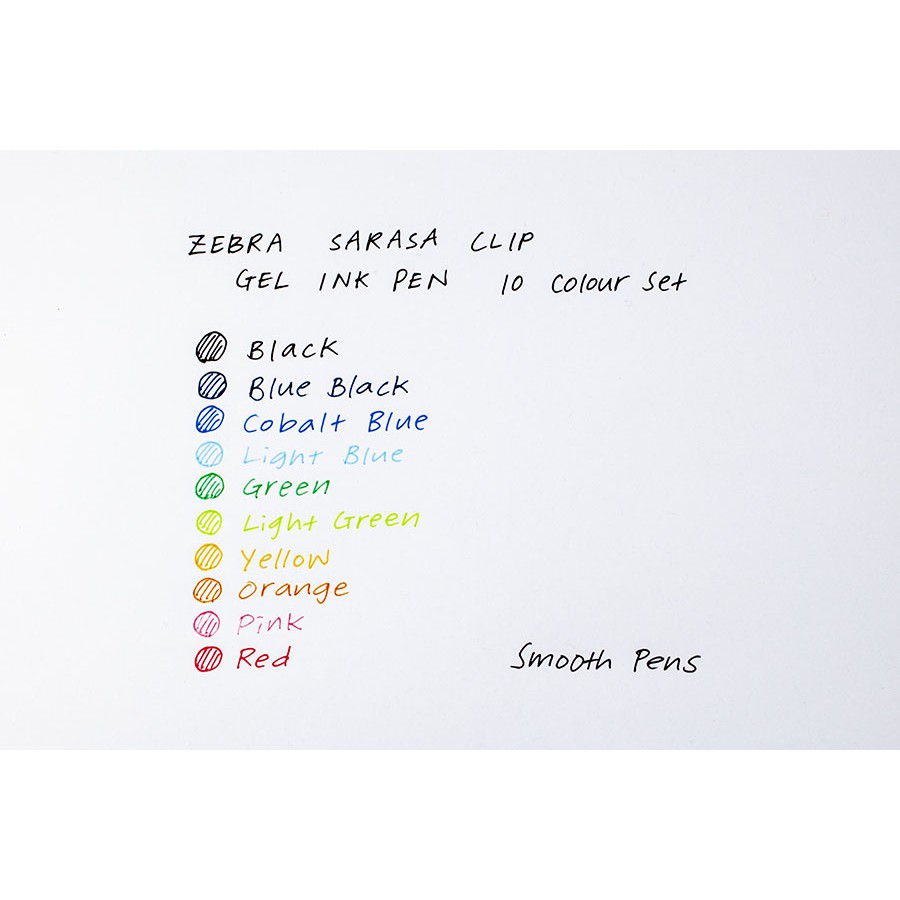 ZEBRA SARASA CLIP
GEL INK PEN 10 Colour Set
Black
Blue Black
Cobalt Blue
Light Blue
Green
Light Green
Yellow
Orange
Pink
Red
Smooth Pens